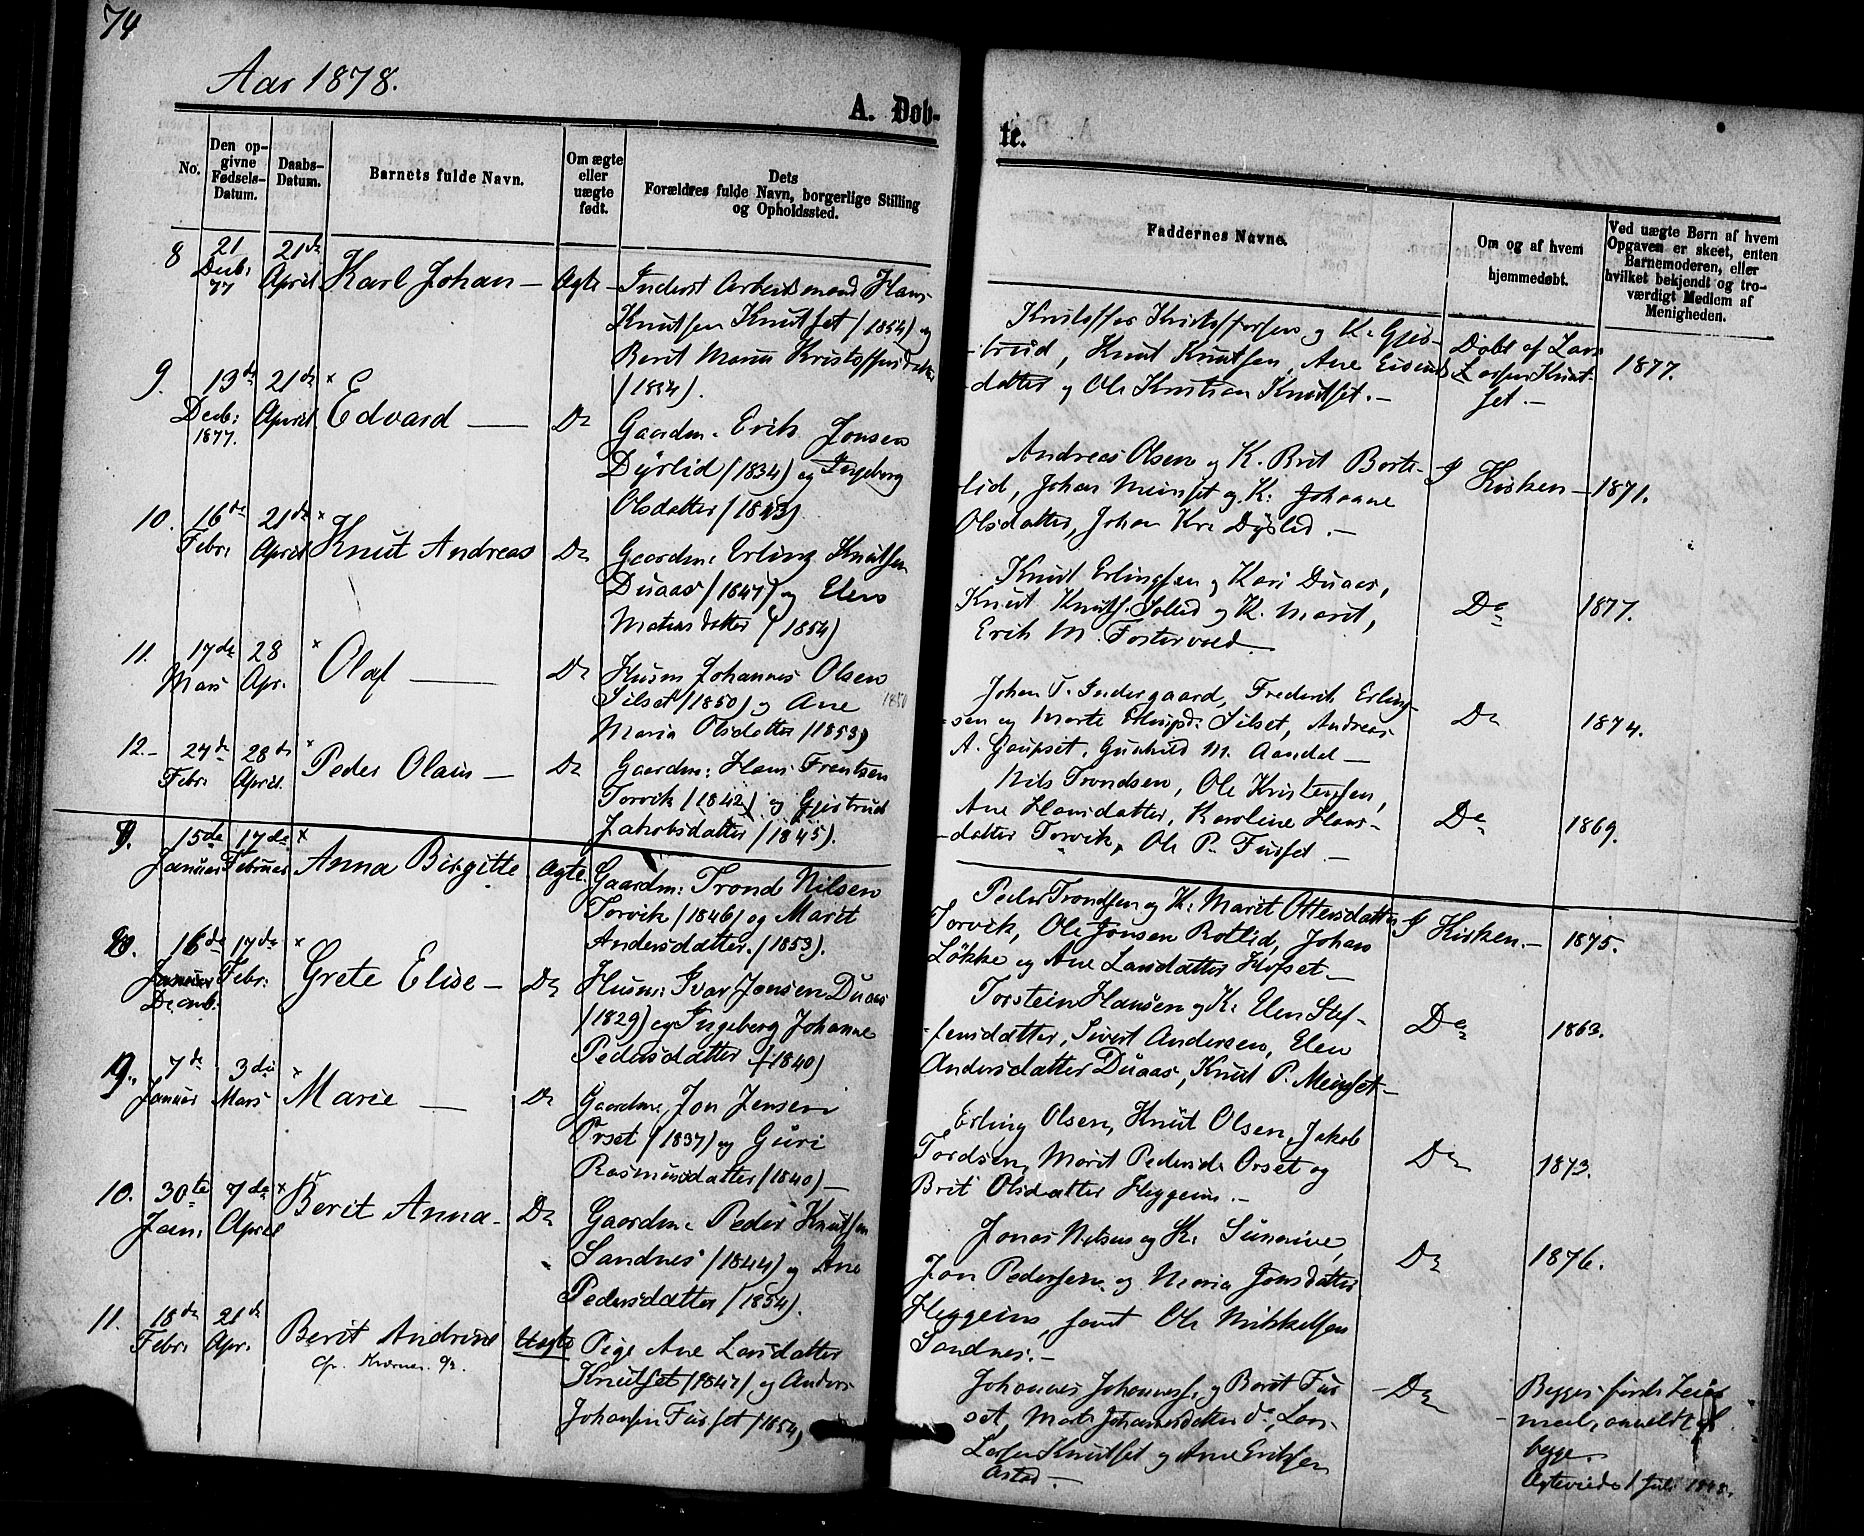 74
Aar 1878.
A. Døb-
te.
No.
Den op-
givne
Fødsels-
Datum.
Daabs-
Datum.
Barnets fulde Navn.
Om ægte
eller
uægte
født.
Dets
Forældres fulde Navn, borgerlige Stilling
og Opholdssted.
Faddernes Navne.
Om og af hvem
hjemmedøbt.
Ved uægte Børn af hvem
Opgaven er skeet, enten
Barnemoderen, eller
hvilket bekjendt og tro-
værdigt Medlem af
Menigheden.
8 21 Decb: 77
21de April
Karl Johan – Ægte –
Inderst Arbeidsmand Hans
Knutsen Knutset (1854) og
Berit Maria Kristoffersdatter
(1854).
Kristoffer Kristoffersen og K. Gjer-
-trud, Knut Knutsen, Ane
datter og Ole Kristian Knutset. –
Døbt af Lars
Larsen Knut-
set. –
1877.
9. 13de Decb: 1877.
21de April
× Edvard — Do
Gaardm. Erik Jonsen
Dyrlid (1834) og Ingeborg
Olsdatter (1843).
Andreas Olsen og K. Brit Borte-
-lid, Johan Meinset og K: Johanne
Olsdatter, Johan Kr. Dyrlid. –
I Kirken – 1871.
10. 16de Febr:
21de April
× Knut Andreas Do
Gaardm: Erling Knutsen
Duaas (1847) og Elen
Matiasdatter (1854)
Knut Erlingsen og Kari Duaas,
Knut Knuts. Solid og K. Marit,
Erik M. Fostervold.
Do 1877.
11. 17de Mars
28 Apr.
× Olaf — Do
Husm Johannes Olsen
Silset (1850) og Ane 1850
Maria Olsdatter (1853)
Johan T. Indergaard, Frederik Erling-
-sen og Marte Silset, Andreas
A. Gaupset, Gunhild M. Aandal —
Do 1874.
12. – 24de Febr:
28de April
× Peder Olaus — Do
Gaardm: Hans Frantsen
Torvik (1842) og Gjertrud
Jakobsdatter (1845).
Nils Trondsen, Ole Kristensen,
Ane Hansdatter, Karoline Hans-
-datter Torvik, Ole P. Furset –
Do 1869.
15de Januar
17de Februar
× Anna Birgitte Ægte.
Gaardm: Trond Nilsen
Torvik (1846) og Marit
Andersdatter. (1853).
Peder Trondsen og K: Marit Ottersdatter
Torvik, Ole Jonsen Rotlid, Johan
Løkke og Ane Larsdatter Hofset. –
I Kirken. – 1875.
8. 16de Januar Decemb.
17de Febr:
× Grete Elise – Do
Husm: Ivar Jonsen Duaas
(1829) og Ingeborg Johanne
Pedersdatter (1840)
Torstein Hansen og K: Elen Stef-
-fensdatter, Sivert Andersen, Elen
Andersdatter Duaas, Knut P. Meinset –
Do 1863.
9. 7de Januar
3die Mars
× Marie — Do
Gaardm. Jon Jensen
Orset (1837) og Guri
Rasmusdatter (1840) —
Erling Olsen, Knut Olsen, Jakob
Tordsen, Marit Pedersdr Orset og
Brit Olsdatter Heggeim. –
Do 1873.
10. 30te Jan.
7de April
× Berit Anna – Do
Gaardm: Peder Knutsen
Sandnes (1844) og Ane
Pedersdatter (1854).
Jonas Nilsen og K: Sunnive,
Jon Pedersen og Maria Jonsdatter
Heggeim, samt Ole Mikkelsen
Sandnes. –
Do 1876.
11. 18de Febr:
21de Apr.
Berit Andrine Uægte
Pige Ane Larsdatter
Knutset (1847) og Anders
Johansen Furset (1854)
Johannes Johanness. og Berit Fur-
set, Marit Johannesdatter do, Lars
Larsen Knutset og Ane Eriksen
– Do
Begges første Leier-
maal, anmeldt af
begge.
Ægteviede 1 Juli 1878.